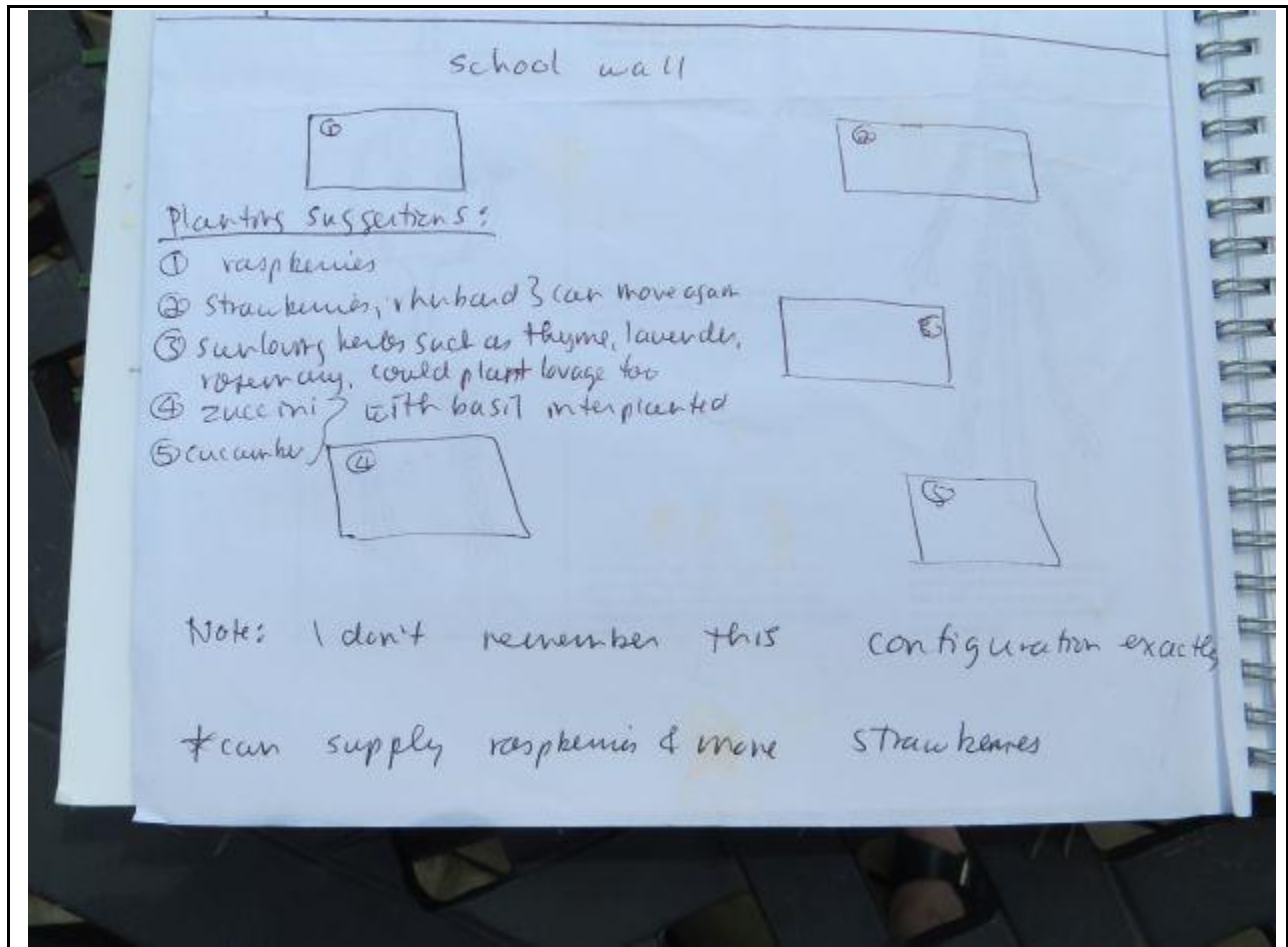 school wall
①
②
Planting suggestions:
① raspberries
② Strawberries, rhubard } can move again
③ sunloving herbs such as thyme, lavender,
rosemary, could plant lovage too
③
④ zuccini } with basil interplanted
⑤ cucumber
④
⑤
Note: I don't remember this configuration exactly
*can supply raspberries & more strawberries